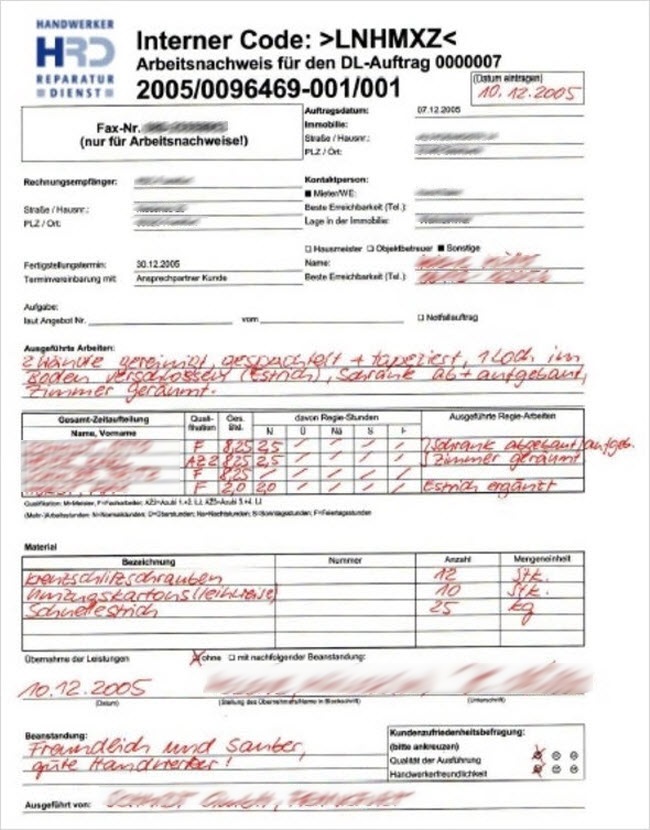 HANDWERKER
HRD
REPARATUR
DIENST
Interner Code: >LNHMXZ<
Arbeitsnachweis für den DL-Auftrag 0000007
2005/0096469-001/001
(Datum eintragen)
10.12.2005
Fax-Nr.
(nur für Arbeitsnachweise!)
Auftragsdatum: 07.12.2005
Immobilie:
Straße / Hausnr.:
PLZ / Ort:
Rechnungsempfänger:
Straße / Hausnr.:
PLZ / Ort:
Kontaktperson:
Mieter/WE:
Beste Erreichbarkeit (Tel.):
Lage in der Immobilie:
Hausmeister Objektbetreuer Sonstige
Fertigstellungstermin: 30.12.2005
Name:
Terminvereinbarung mit: Ansprechpartner Kunde
Beste Erreichbarkeit (Tel.):
Aufgabe:
laut Angebot Nr. vom Notfallauftrag
Ausgeführte Arbeiten:
2 Wände gereinigt, gespachtelt + tapeziert, 1 Loch im
Boden verschlossen (Estrich), Schrank ab + aufgebaut,
Zimmer geräumt.
Gesamt-Zeitaufteilung Quali- Ges. davon Regie-Stunden Ausgeführte Regie-Arbeiten
Name, Vorname fikation Std. N Ü Nä S F
F 8,25 2,5 / / / / Schrank abgebaut/aufgeb.
AZ2 8,25 2,5 / / / / Zimmer geräumt
F 8,25 / / / / /
F 2,0 2,0 / / / / Estrich ergänzt
Qualifikation: M=Meister, F=Facharbeiter,
(Mehr-)Arbeitsstunden: N=Normalstunden; Ü=Überstunden; Nä=Nachtstunden; S=Sonntagsstunden; F=Feiertagsstunden
Material
Bezeichnung Nummer Anzahl Mengeneinheit
Kreuzschlitzschrauben 12 Stk.
Umzugskartons (leihweise) 10 Stk.
Schnellestrich 25 kg
Übernahme der Leistungen ohne mit nachfolgender Beanstandung:
10.12.2005
(Datum) (Stellung des Übernehmers/Name in Blockschrift) (Unterschrift)
Beanstandung:
Freundlich und sauber,
gute Handwerker!
Kundenzufriedenheitsbefragung:
(bitte ankreuzen)
Qualität der Ausführung
Handwerkerfreundlichkeit
Ausgeführt von: